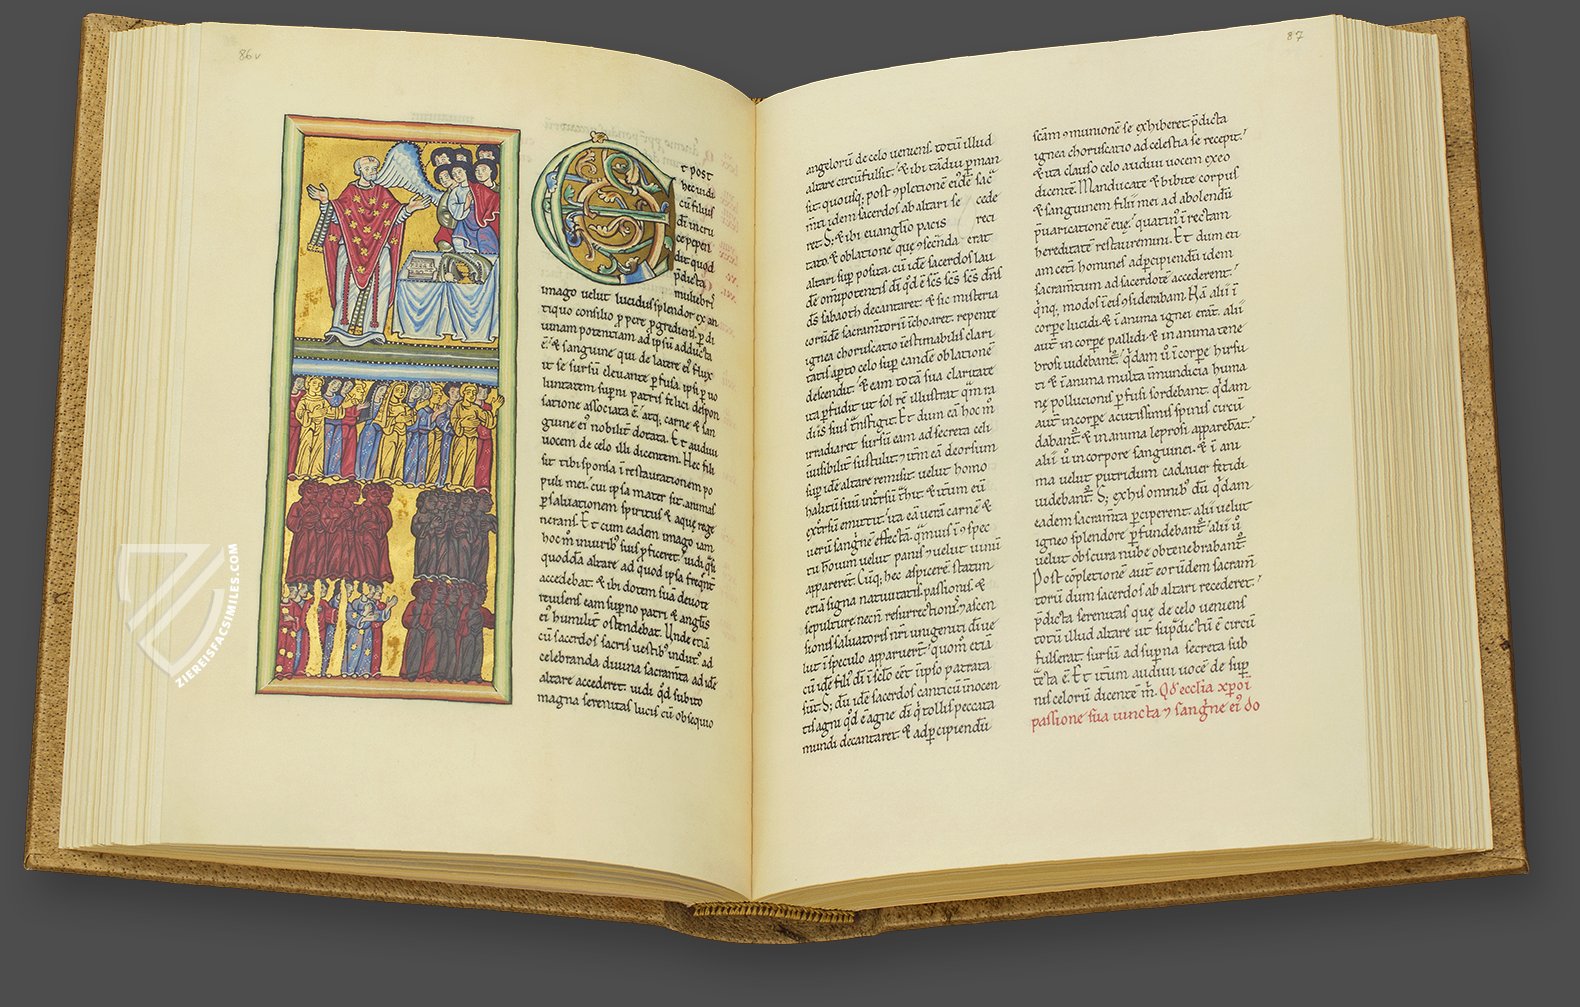 86v
t post
hec uidi
cū filius
dī in cru
ce pepen
dit quod
p̄dicta
muliebris
imago uelut lucidus splendor ex an
tiquo consilio ꝓpere ꝓgrediens. ꝑ di
uinam potentiam ad ipsū adducta
ē. & sanguine qui de latere eiꝰ flux
it se sursū eleuante ꝑfusa. ipsi ꝑ uo
luntatem suꝑni patris felici despon
satione associata ē. atq; carne & san
guine eiꝰ nobilit̄ dotata. Et audiui
uocem de celo illi dicentem. Hec fili
sit tibi sponsa ī restaurationem po
puli mei. cui ipsa mater sit. animas
ꝑ saluationem spiritus & aquę rege
nerans. Et cum eadem imago iam
hoc m̄ in uiribꝰ suis ꝓficeret. uidi q̄si
quodda altare ad quod ipsa freqn̄t̄
accedebat. & ibi dotem suā deuote
reuisens eam suꝑno patri & angl̄is
eiꝰ humilit̄ ostendebat. Unde etiā
cū sacerdos sacris uestibꝰ indutꝰ ad
celebranda diuina sacram̄ta ad idē
altare accederet. uidi qd̄ subito
magna serenitas lucis cū obsequio
87
angelorū de celo ueniens. totū illud
altare circūfulsit. & ibi tādiu ꝑman
sit quousq; post ꝯpletionē eiꝰdē sac̄
m̄ti idem sacerdos ab altari se cede
ret. S; & ibi euanglio pacis reci
tato. & oblatione quę ꝯsecn̄da erat
altari suꝑ posita. cū idē sacerdos lau
dē om̄ipotentis dī qd̄ ē sc̄s sc̄s sc̄s dn̄s
ds̄ sabaoth decantaret. & sic misteria
eorūdē sacram̄torū īchoaret. repente
ignea choruscatio īestimabilis clari
tatis aꝑto celo suꝑ eandē oblationē
descendit. & eam totā sua claritate
ita ꝑfudit ut sol rē illustrat q̄m ra
diis suis tn̄sfigit. Et dum eā hoc m̄
irradiaret. sursū eam ad secreta celi
īuisibilit̄ sustulit. & itm̄ eā deorsum
suꝑ idē altare remisit. uelut homo
halitū suū int̄rsū t̄hit. & itū eū
ext̄rsū emittit. ita eā uerā carnē &
uerū sangn̄ē effectā. q̄muis ī ꝯspec
tu hoīum uelut panis & uelut uinū
appareret. Cūq; hec aspicerē. statim
etiā signa natiuitatis. passionis. &
sepulture. necn̄ resurrectionis. & ascen
sionis saluatoris nr̄i unigeniti dī ue
lut ī speculo apparuerūt. quom̄ etiā
cū idē filꝰ dī ī sc̄lo eēt ī ipso patrata
sūt. S; dū idē sacerdos canticū īnocen
tis agni qd̄ ē agne dī q̄ tollis peccata
mundi decantaret. & ad ꝑcipiendū
sc̄am ꝯmunionē se exhiberet. p̄dicta
ignea choruscatio ad celestia se recepit.
& ita clauso celo audiui uocem ex eo
dicentē. Manducate & bibite corpus
& sanguinem filii mei ad abolendū
p̄uaricationē euę. quatinꝰ ī rectam
hereditatē restauremini. Et dum ceti
am cetī homines ad ꝑcipiendū idem
sacram̄tum ad sacerdotē accederent.
q̄nq; modos ī eis ꝯsiderabam. Nā alii ī
corpe lucidi. & ī anima ignei erāt. alii
aut̄ in corpe pallidi. & in anima tene
brosi uidebant̄. qd̄am ū ī corpe hirsu
ti & ī anima multa īmundicia huma
nę pollucionis ꝑfusi sordebant. qd̄am
aut̄ in corpe acutissimis spinis circū
dabant̄. & in anima leprosi apparebāt.
alii ū in corpore sanguinei. & ī ani
ma uelut putridum cadauer fetidi
uidebant̄. S; ex his omnibꝰ dū qd̄am
eadem sacram̄ta ꝑciperent. alii uelut
igneo splendore ꝑfundebant̄. alii ū
uelut obscura nube obtenebrabant̄.
Post cōpletionē aut̄ eorūdem sacram̄
torū dum sacerdos ab altari recederet.
p̄dicta serenitas quę de celo ueniens
totū illud altare ut sup̄dictū ē circū
fulserat. sursū ad suꝑna secreta sub
tc̄ta ē. Et itūm audiui uocē de suꝑ
nis celorū dicentē m̄. Qd̄ ecclīa xp̄oī
passione sua iuncta & sangn̄e eiꝰ do
ZIEREISFACSIMILES.COM